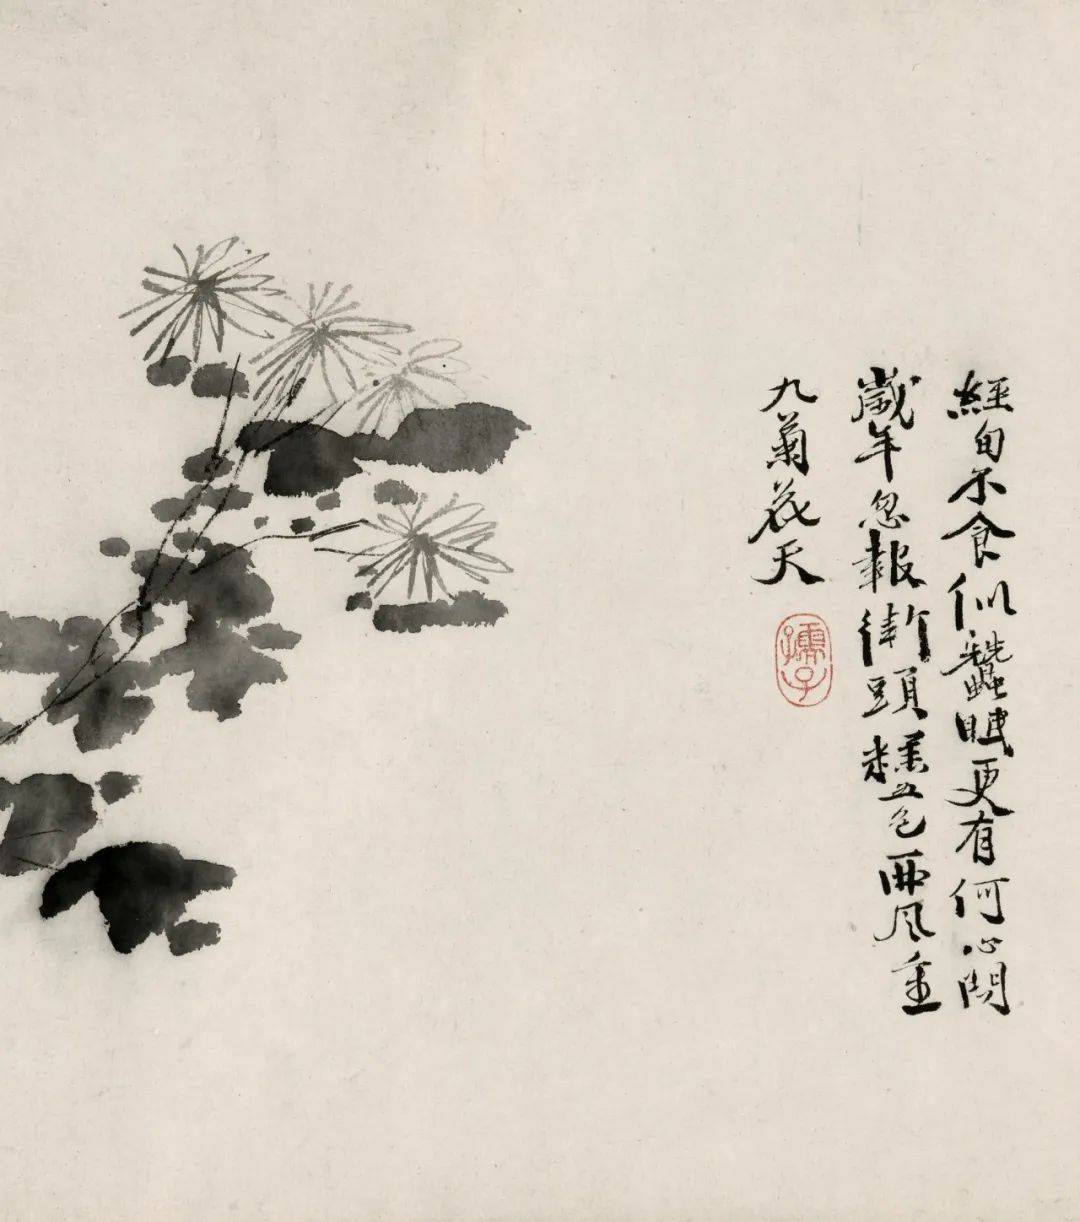 經旬不食似蠶眠更有何心問
歲年忽報街頭糕五色西風重
九菊花天
孺子